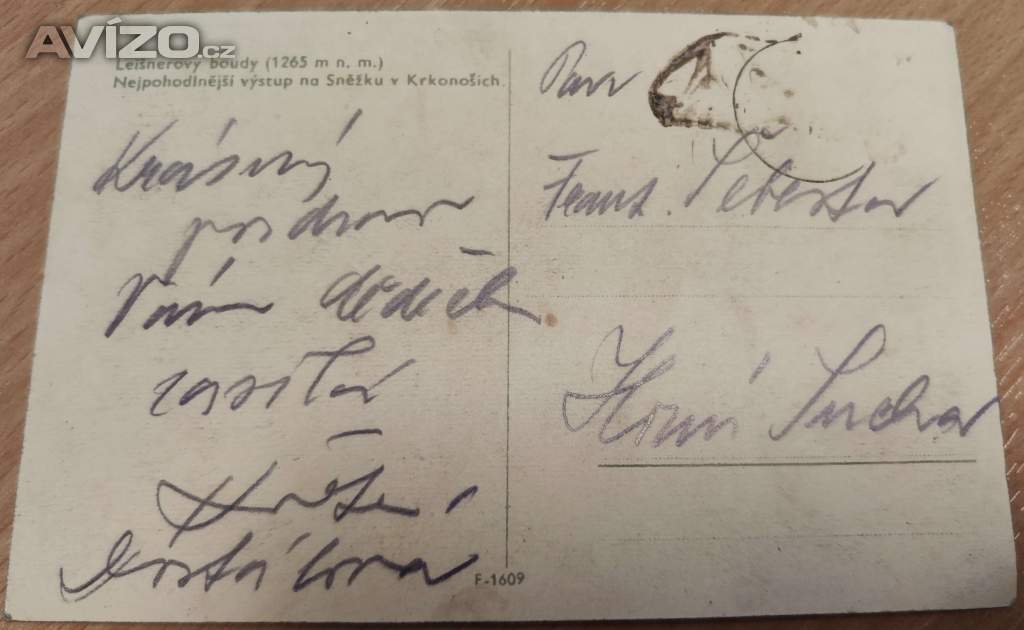 AVÍZO.cz
Leišnerovy boudy (1265 m n. m.)
Nejpohodlnější výstup na Sněžku v Krkonoších.
Krásný
pozdrav
Vám dědeč
zasílá
Dostálova
Pan
Frant. Šebesta
Horní Suchá
F-1609